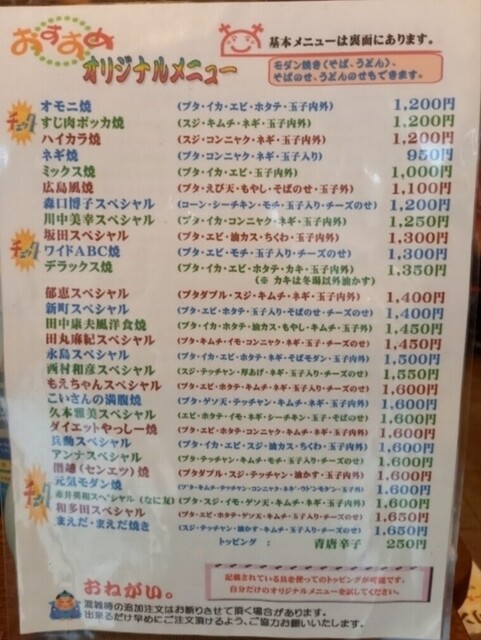 おすすめ
オリジナルメニュー
基本メニューは裏面にあります。
モダン焼き(そば、うどん)、
そばのせ、うどんのせもできます。
オモニ焼 (ブタ・イカ・エビ・ホタテ・玉子内外) 1,200円
チェック
すじ肉ポッカ焼 (スジ・キムチ・ネギ・玉子内外) 1,200円
ハイカラ焼 (スジ・コンニャク・ネギ・玉子内外) 1,200円
ネギ焼 (ブタ・コンニャク・ネギ・玉子入り) 950円
ミックス焼 (ブタ・イカ・エビ・玉子内外) 1,000円
広島風焼 (ブタ・えび天・もやし・そばのせ・玉子外) 1,100円
森口博子スペシャル (コーン・シーチキン・モチ・玉子入り・チーズのせ) 1,200円
川中美幸スペシャル (ブタ・イカ・コンニャク・ネギ・玉子内外) 1,250円
坂田スペシャル (ブタ・エビ・油カス・ちくわ・玉子内外) 1,300円
チェック
ワイドABC焼 (ブタ・エビ・モチ・玉子入り・チーズのせ) 1,300円
デラックス焼 (ブタ・イカ・エビ・ホタテ・カキ・玉子内外) 1,350円
(※ カキは冬場以外油かす)
郁恵スペシャル (ブタダブル・スジ・キムチ・ネギ・玉子内外) 1,400円
新町スペシャル (ブタ・エビ・ホタテ・玉子入り・そばのせ・チーズのせ) 1,400円
田中康夫風洋食焼 (ブタ・イカ・ホタテ・油カス・もやし・キムチ・玉子外) 1,450円
田丸麻紀スペシャル (ブタ・キムチ・イモ・コンニャク・ネギ・玉子・チーズのせ) 1,450円
永島スペシャル (ブタ・イカ・エビ・ホタテ・ネギ・そばモダン・玉子内外) 1,500円
西村和彦スペシャル (スジ・テッチャン・厚あげ・ネギ・玉子入り・チーズのせ) 1,550円
もえちゃんスペシャル (ブタ・エビ・ホタテ・キムチ・ネギ・玉子入り・チーズのせ) 1,600円
こいさんの満腹焼 (ブタ・ゲソ天・テッチャン・キムチ・ネギ・玉子内外) 1,600円
久本雅美スペシャル (エビ・ホタテ・イモ・ネギ・シーチキン・玉子・そばのせ) 1,600円
ダイエットやっしー焼 1,600円
兵動スペシャル (ブタ・イカ・エビ・スジ・油カス・ちくわ・玉子内外) 1,600円
アンナスペシャル (ブタ・テッチャン・キムチ・モチ・玉子入り・チーズのせ) 1,600円
僭越(センエツ)焼 (ブタダブル・スジ・テッチャン・油かす・玉子内外) 1,600円
チェック
元気モダン焼 1,600円
赤井英和スペシャル(なに友) (ブタ・スジ・イモ・ゲソ天・キムチ・ネギ・玉子内外) 1,600円
和多田スペシャル (ブタ・エビ・ホタテ・ゲソ天・キムチ・ネギ・玉子入り・チーズのせ) 1,650円
まえだ・まえだ焼き (スジ・テッチャン・油かす・キムチ・玉子入り・チーズのせ) 1,650円
トッピング : 青唐辛子 250円
おねがい。
混雑時の追加注文はお断りさせて頂く場合があります。
出来るだけ早めにご注文頂けるよう、ご協力お願いします。
記載されている具を使ってのトッピングが可能です。
自分だけのオリジナルメニューを試してください。